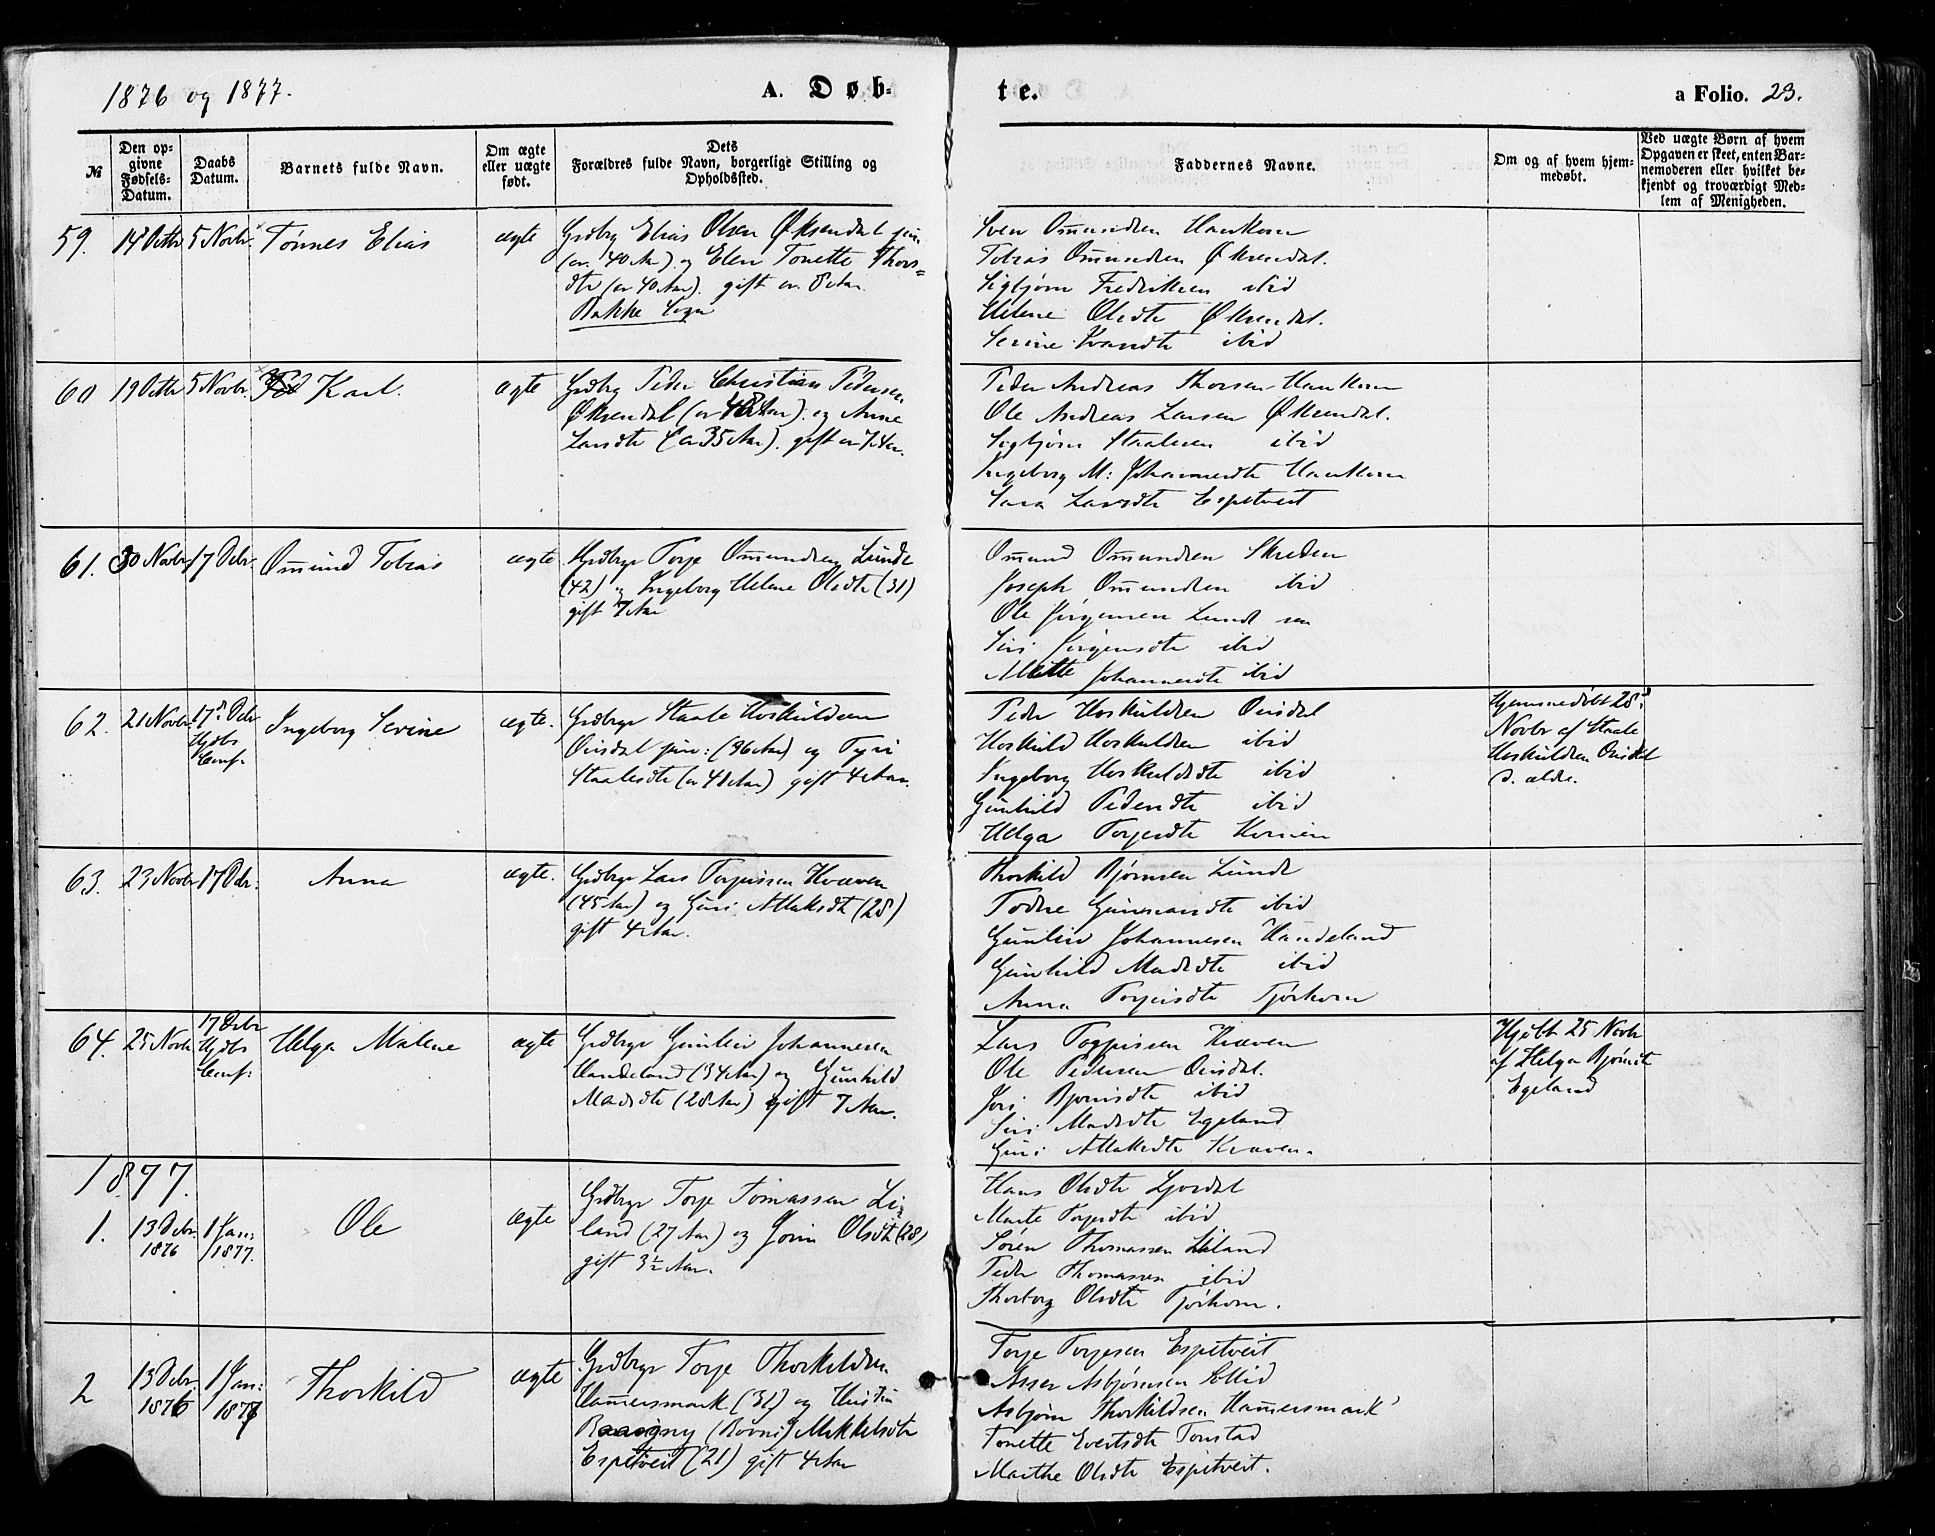 1876 og 1877.
A. Døb-
te.
a Folio. 23.
№
Den op-
givne
Fødsels-
Datum.
Daabs
Datum.
Barnets fulde Navn.
Om ægte
eller uægte
født.
Dets
Forældres fulde Navn, borgerlige Stilling og
Opholdssted.
Faddernes Navne.
Om og af hvem hjem-
medøbt.
Ved uægte Børn af hvem
Opgaven er skeet, enten Bar-
nemoderen eller hvilket be-
kjendt og troværdigt Med-
lem af Menigheden.
59. 14 Octbr 5 Novbr. Tønnes Elias ægte
Grdbrg Elias Olsen Øksendal jun
(er 40 Aar) og Elen Tonette Thors-
dtr (er 40 Aar). gift er 8 Aar.
Bakke Sogn
Sven Omundsen Haukom
Tobias Omundsen Øksendal.
Sigbjørn Fredriksen ibid
Helene Olsdtr Øksendal.
Serine Ivarsdtr ibid
60 19 Octbr 5 Novbr. Karl. ægte
Grdbrg Peder Christian Pedersen
Øksendal (er Aar). og Anne
Larsdtr (er 35 Aar). gift er 7 Aar.
Peder Andreas Thorsen Haukom
Ole Andreas Larsen Øksendal.
Sigbjørn Staalesen ibid
Ingeborg M: Johannesdtr Haukom
Sara Larsdtr Espetveit
61. 30 Novbr 17 Debr. Omund Tobias ægte
Grdbrgr Torje Omundsen Lunde
(42) og Ingeborg Helene Olsdtr (31)
gift 7 Aar
Omund Omundsen Skreden
Joseph Omundsen ibid
Ole Jørgensen Lunde sen
Siri Jørgensdtr ibid
Mette Johannesdtr ibid
62. 21 Novbr. 17d. Debr
Hjdbs
Conf.
Ingeborg Serine ægte.
Grdbrgr Staale Hoskuldsen
Ousdal jun: (36 Aar) og Tyri
Staalesdtr (er 41 Aar) gift 4 Aar.
Peder Hoskuldsen Ousdal
Hoskuld Hoskuldsen ibid
Ingeborg Hoskuldsdtr ibid
Gunhild Pedersdtr ibid
Helga Torjesdtr
Hjemmedøbt 28d.
Novbr af Staale
Hoskuldsen Ousdal
d. ældre.
63. 23 Novbr 17 Debr: Anna ægte.
Grdbrgr Lars Torjussen Kvæven
(45 Aar) og Guri Atlaksdtr (28)
gift 4 Aar.
Thorkild Bjørnsen Lunde
Todne Gunnarsdtr ibid
Gunleiv Johannesen Haneland
Gunhild Madsdtr ibid
Anna Torjusdtr Tjørhom
64. 25 Novbr. 17 Debr
Hjdbs
Conf:
Helga Malene ægte
Grdbrgr Gunleiv Johannesen
Haneland (34 Aar) og Gunhild
Madsdtr (28 Aar) gift 7 Aar.
Lars Torjussen Kvæven
Ole Pedersen Ousdal.
Jori Bjørnsdtr ibid
Siri Madsdtr Egeland
Guri Atlaksdtr Kvæven.
Hjdbt 25 Novbr
af Helga Bjørnsdtr
Egeland
1877.
1. 13 Debr.
1876
1 Jan:
1877.
Ole ægte
Grdbrgr Torje Tomassen Li-
land (27 Aar) og Jorin Olsdtr (28)
gift 3½ Aar.
Hans Olsdtr Ljosdal
Marte Torjesdtr ibid
Søren Thomassen Liland
Peder Thomassen ibid
Thorborg Olsdtr Tjørhom.
2 13 Debr.
1876
1 Jan:
1877
Thorkild ægte
Grdbrgr Torje Thorkildsen
Hamersmark (31) og Hustru
(Rovni) Mikkelsdtr
Espetveit (21) gift 4 Aar
Torje Torjesen Espetveit
Asser Asbjørnsen Eftid
Asbjørn Thorkildsen Hamersmark
Tonette Evertsdtr Tonstad
Marthe Olsdtr Espetveit.